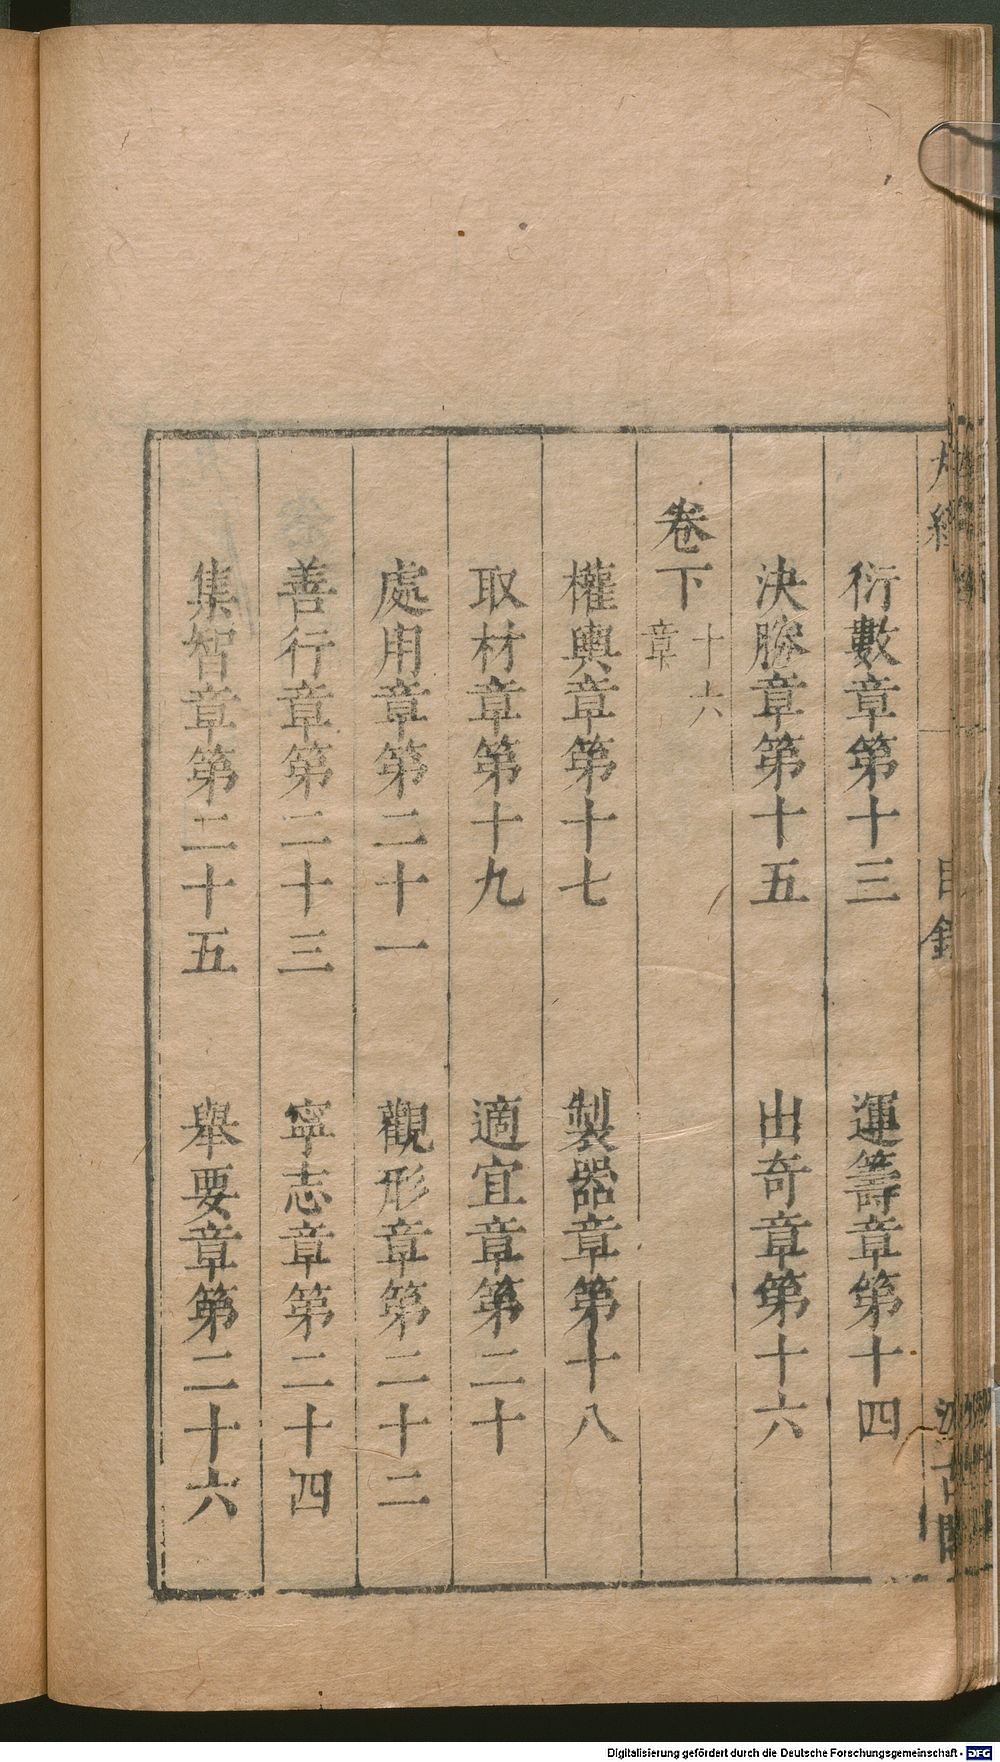 衍數章第十三　運籌章第十四
決勝章第十五　出奇章第十六
卷下十六章
權輿章第十七　製器章第十八
取材章第十九　適宜章第二十
處用章第二十一　觀形章第二十二
善行章第二十三　寧志章第二十四
集智章第二十五　舉要章第二十六
目錄
Digitalisierung gefördert durch die Deutsche Forschungsgemeinschaft - DFG